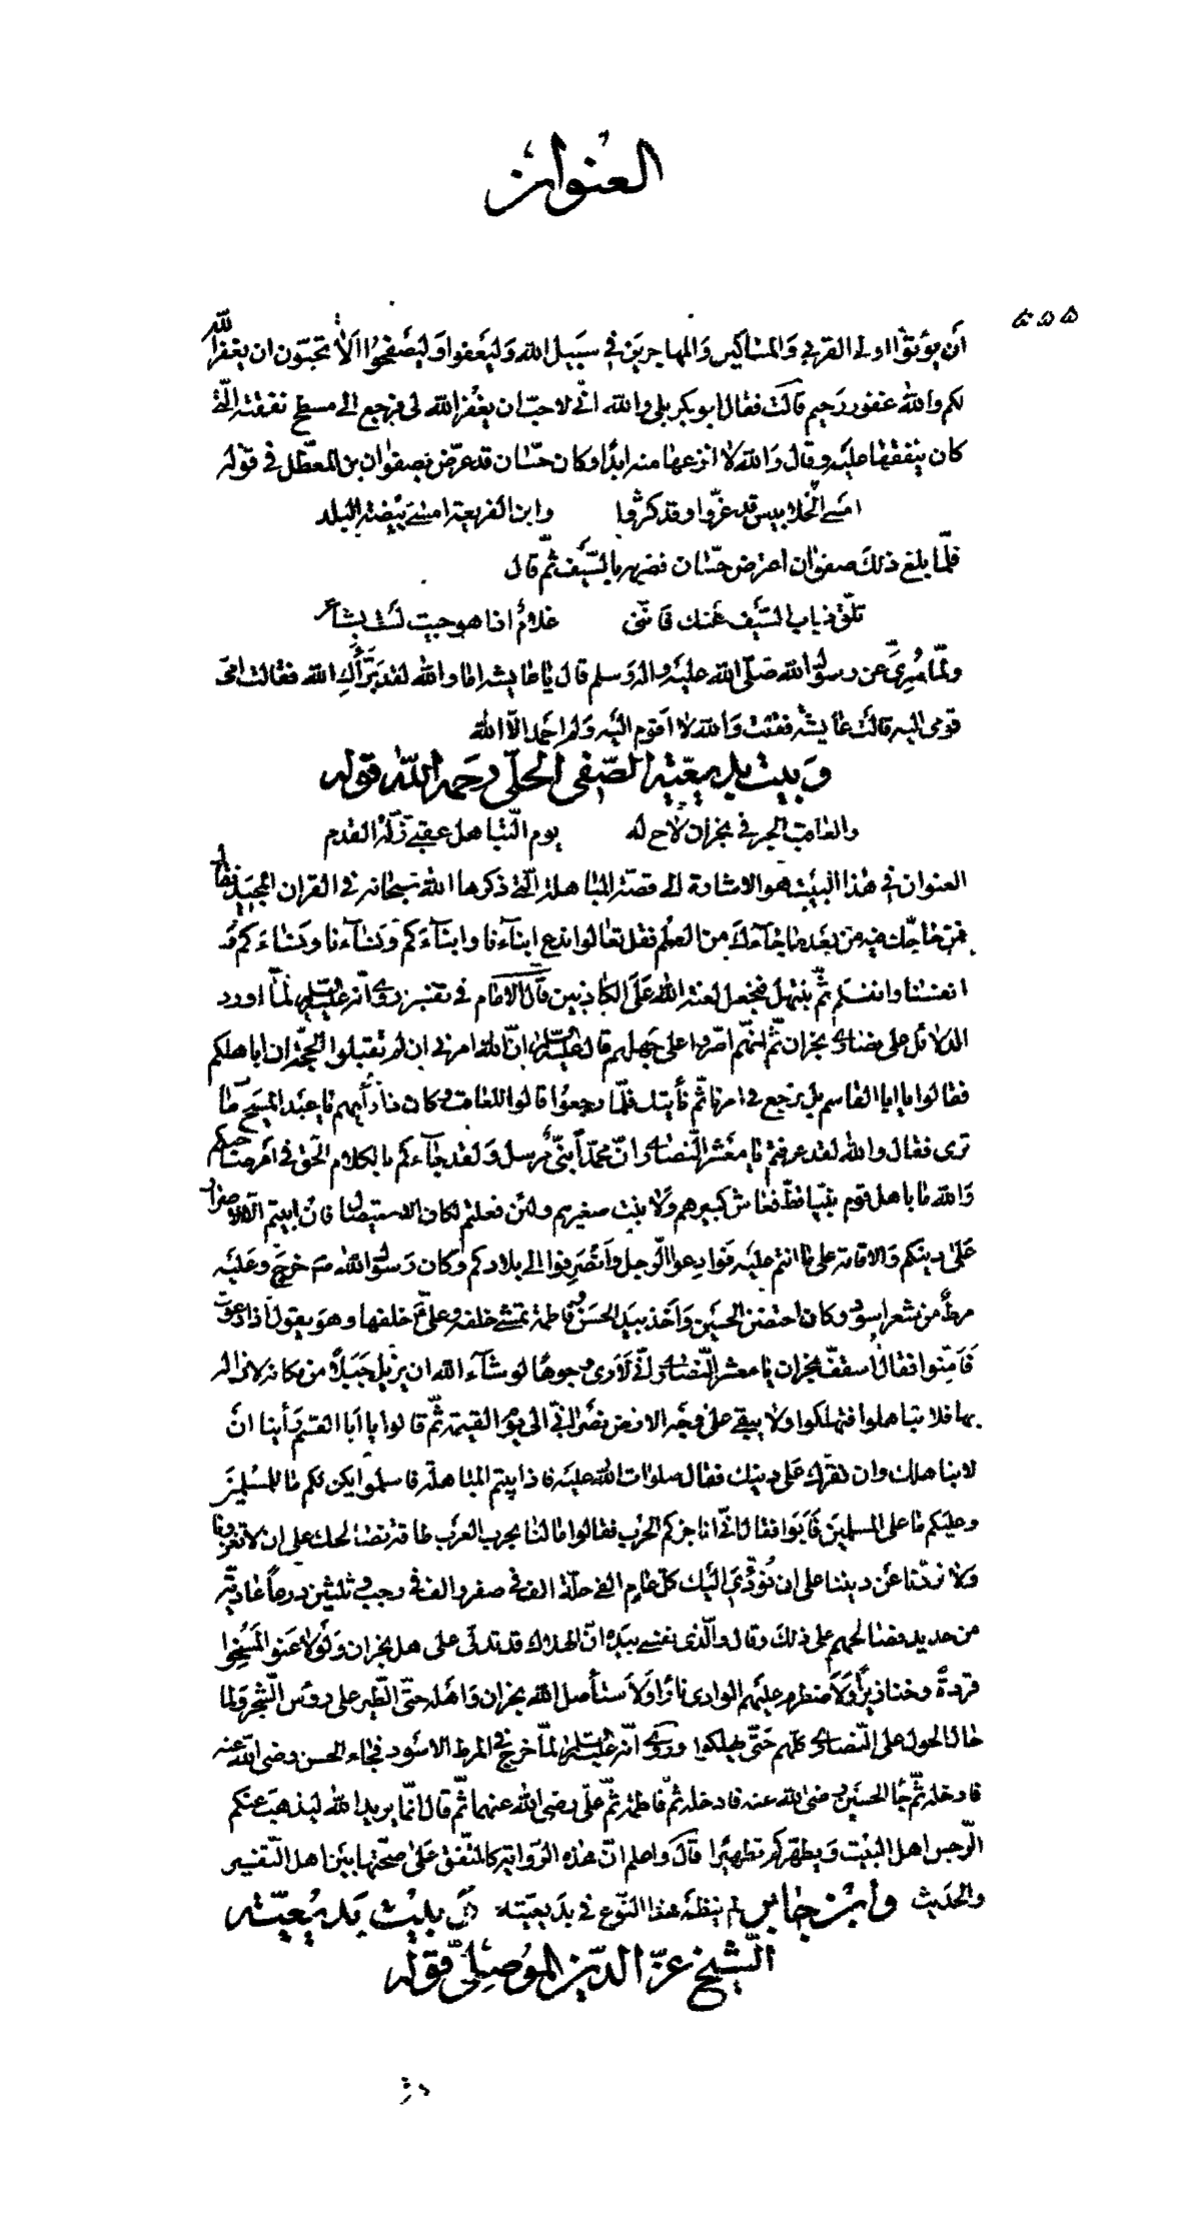 العنوان
٥٥٥
أن يؤتوا اولى القربى والمساكين والمهاجرين في سبيل الله وليعفوا وليصفحوا الا تحبّون ان يغفر الله
لكم والله غفور رحيم قالت فقال ابو بكر بلى والله انّى لاحبّ ان يغفر الله لى فرجع الى مسطح نفقته الّتى
كان ينفقها عليه وقال والله لا انزعها منه ابدًا وكان حسّان قد عرّض بصفوان بن المعطّل فى قوله
امسى الخلابيس قد عزّوا وقد كثروا وابن الفريعة امسى بيضة البلد
فلمّا بلغ ذلك صفوان اعترض حسّان فضربه بالسّيف ثمّ قال
تلقّ ذباب السّيف عنك فانّنى غلامٌ اذا هوجيت لست بشاعر
ولمّا سُرِّىَ عن رسول الله صلّى الله عليه واله وسلم قال يا عايشه اما والله لقد برّأكِ الله فقالت امّى
قومى اليه قالت عايشه فقلت والله لا اقوم اليه ولا احمد الّا الله
وبيت بديعيّة الصّفى الحلّى رحمه الله قوله
والعاقب الحبر في نجران لاح له يوم التّباهل عقبى زلّة القدم
العنوان في هذا البيت هو الاشارة الى قصّة المباهلة الّتى ذكرها الله سبحانه فى القران المجيد فقال
فمن حاجّك فيه من بعد ما جاءك من العلم فقل تعالوا ندع ابناءنا وابناءكم ونساءنا ونساءكم و
انفسنا وانفسكم ثمّ نبتهل فنجعل لعنة الله على الكاذبين قال الامام فى تفسيره روى انّه عليه السّلام لمّا اورد
الدلائل على نصارى نجران ثمّ انّهم اصّروا على جهلهم قال عليه السّلام انّ الله امرنى ان لم تقبلوا الحجّة ان اباهلكم
فقالوا يا ابا القاسم بل نرجع فى امرنا ثمّ نأتيك فلمّا رجعوا قالوا للعاقب وكان ذا رأيهم يا عبد المسيح ما
ترى فقال والله لقد عرفتم يا معشر النّصارى انّ محمّداً نبىّ مرسل ولقد جاءكم بالكلام الحق فى امر صاحبكم
والله ما باهل قوم نبيّا قطّ فعاش كبيرهم ولا نبت صغيرهم ولئن فعلتم لكان الاستيصال فان ابيتم الّا الاصرار
على دينكم والاقامة على ما انتم عليه فوادعوا الرّجل وانصرفوا الى بلادكم وكان رسول الله ص خرج وعليه
مرطٌ من شعر اسود وكان احتضن الحسين واخذ بيد الحسن وفاطمة تمشى خلفه وعلىّ ع خلفها وهو يقول اذا دعوت
فامّنوا فقال اسقفّ نجران يا معشر النّصارى انّى لارى وجوهًا لو شاء الله ان يزيل جبلاً من مكانه لازاله
بها فلا تباهلوا فتهلكوا ولا يبقى على وجه الارض نصرانىّ الى يوم القيمة ثمّ قالوا يا ابا القسم رأينا ان
لا نباهلك وان نقرّك على دينك فقال صلوات الله عليه فاذا ابيتم المباهلة فاسلموا يكن لكم ما للمسلمين
وعليكم ما على المسلمين فابوا فقال انّى اناجزكم الحرب فقالوا ما لنا بحرب العرب طاقة نصالحك على ان لا تغزونا
ولا تردّنا عن ديننا على ان نُؤدّىَ اليك كلّ عام الفى حلّة الف فى صفر والف فى رجب وثلثين درعاً عاديّه
من حديد فصالحهم على ذلك وقال والّذى نفسى بيده انّ الهلاك قد تدلّى على اهل نجران ولو لاعنوا لمسخوا
قردةً وخنازير ولاضطرم عليهم الوادى نارًا ولاستأصل الله نجران واهله حتّى الطّير على روس الشّجر ولما
حال الحول على النّصارى كلّهم حتّى يهلكوا وروى انّه عليه السّلام لمّا خرج فى المرط الاسود فجاء الحسن رضى الله عنه
فادخله ثمّ جاء الحسين رضى الله عنه فادخله ثمّ فاطمة ثمّ علىّ رضى الله عنهما ثمّ قال انّما يريد الله ليذهب عنكم
الرّجس اهل البيت ويطهّركم تطهيرا قال واعلم انّ هذه الرّواية كالمتّفق على صحّتها بين اهل التّفسير
والحديث وابن جابر لم ينظم هذا النّوع فى بديعيّته وبيت بديعيّة
الشّيخ عزّ الدّين الموصلىّ قوله